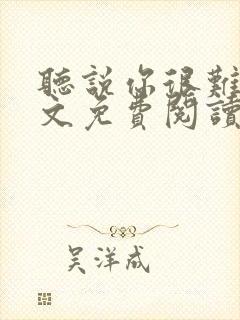 聽說你很難
文免費閱讀
吴洋成